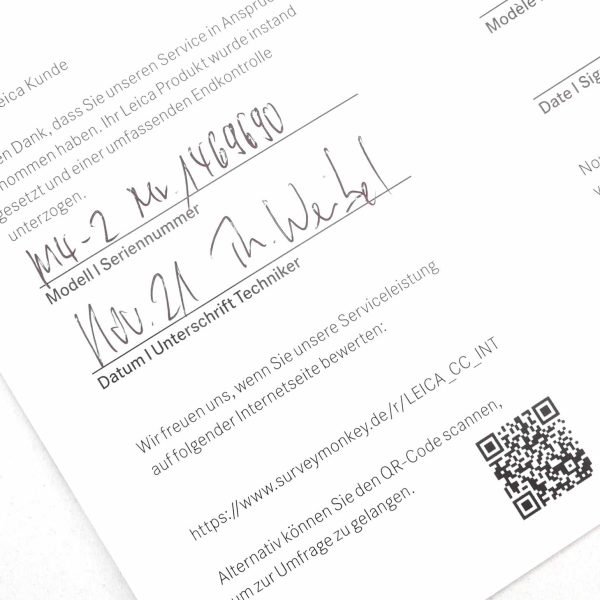 Leica Kunde
en Dank, dass Sie unseren Service in Anspruch
nommen haben. Ihr Leica Produkt wurde instand
gesetzt und einer umfassenden Endkontrolle
unterzogen.
M4-2 Nr. 1469690
Modell | Seriennummer
Nov. 21 Th. Weibel
Datum | Unterschrift Techniker
Wir freuen uns, wenn Sie unsere Serviceleistung
auf folgender Internetseite bewerten:
https://www.surveymonkey.de/r/LEICA_CC_INT
Alternativ können Sie den QR-Code scannen,
um zur Umfrage zu gelangen.
Modèle
Date | Sig
No